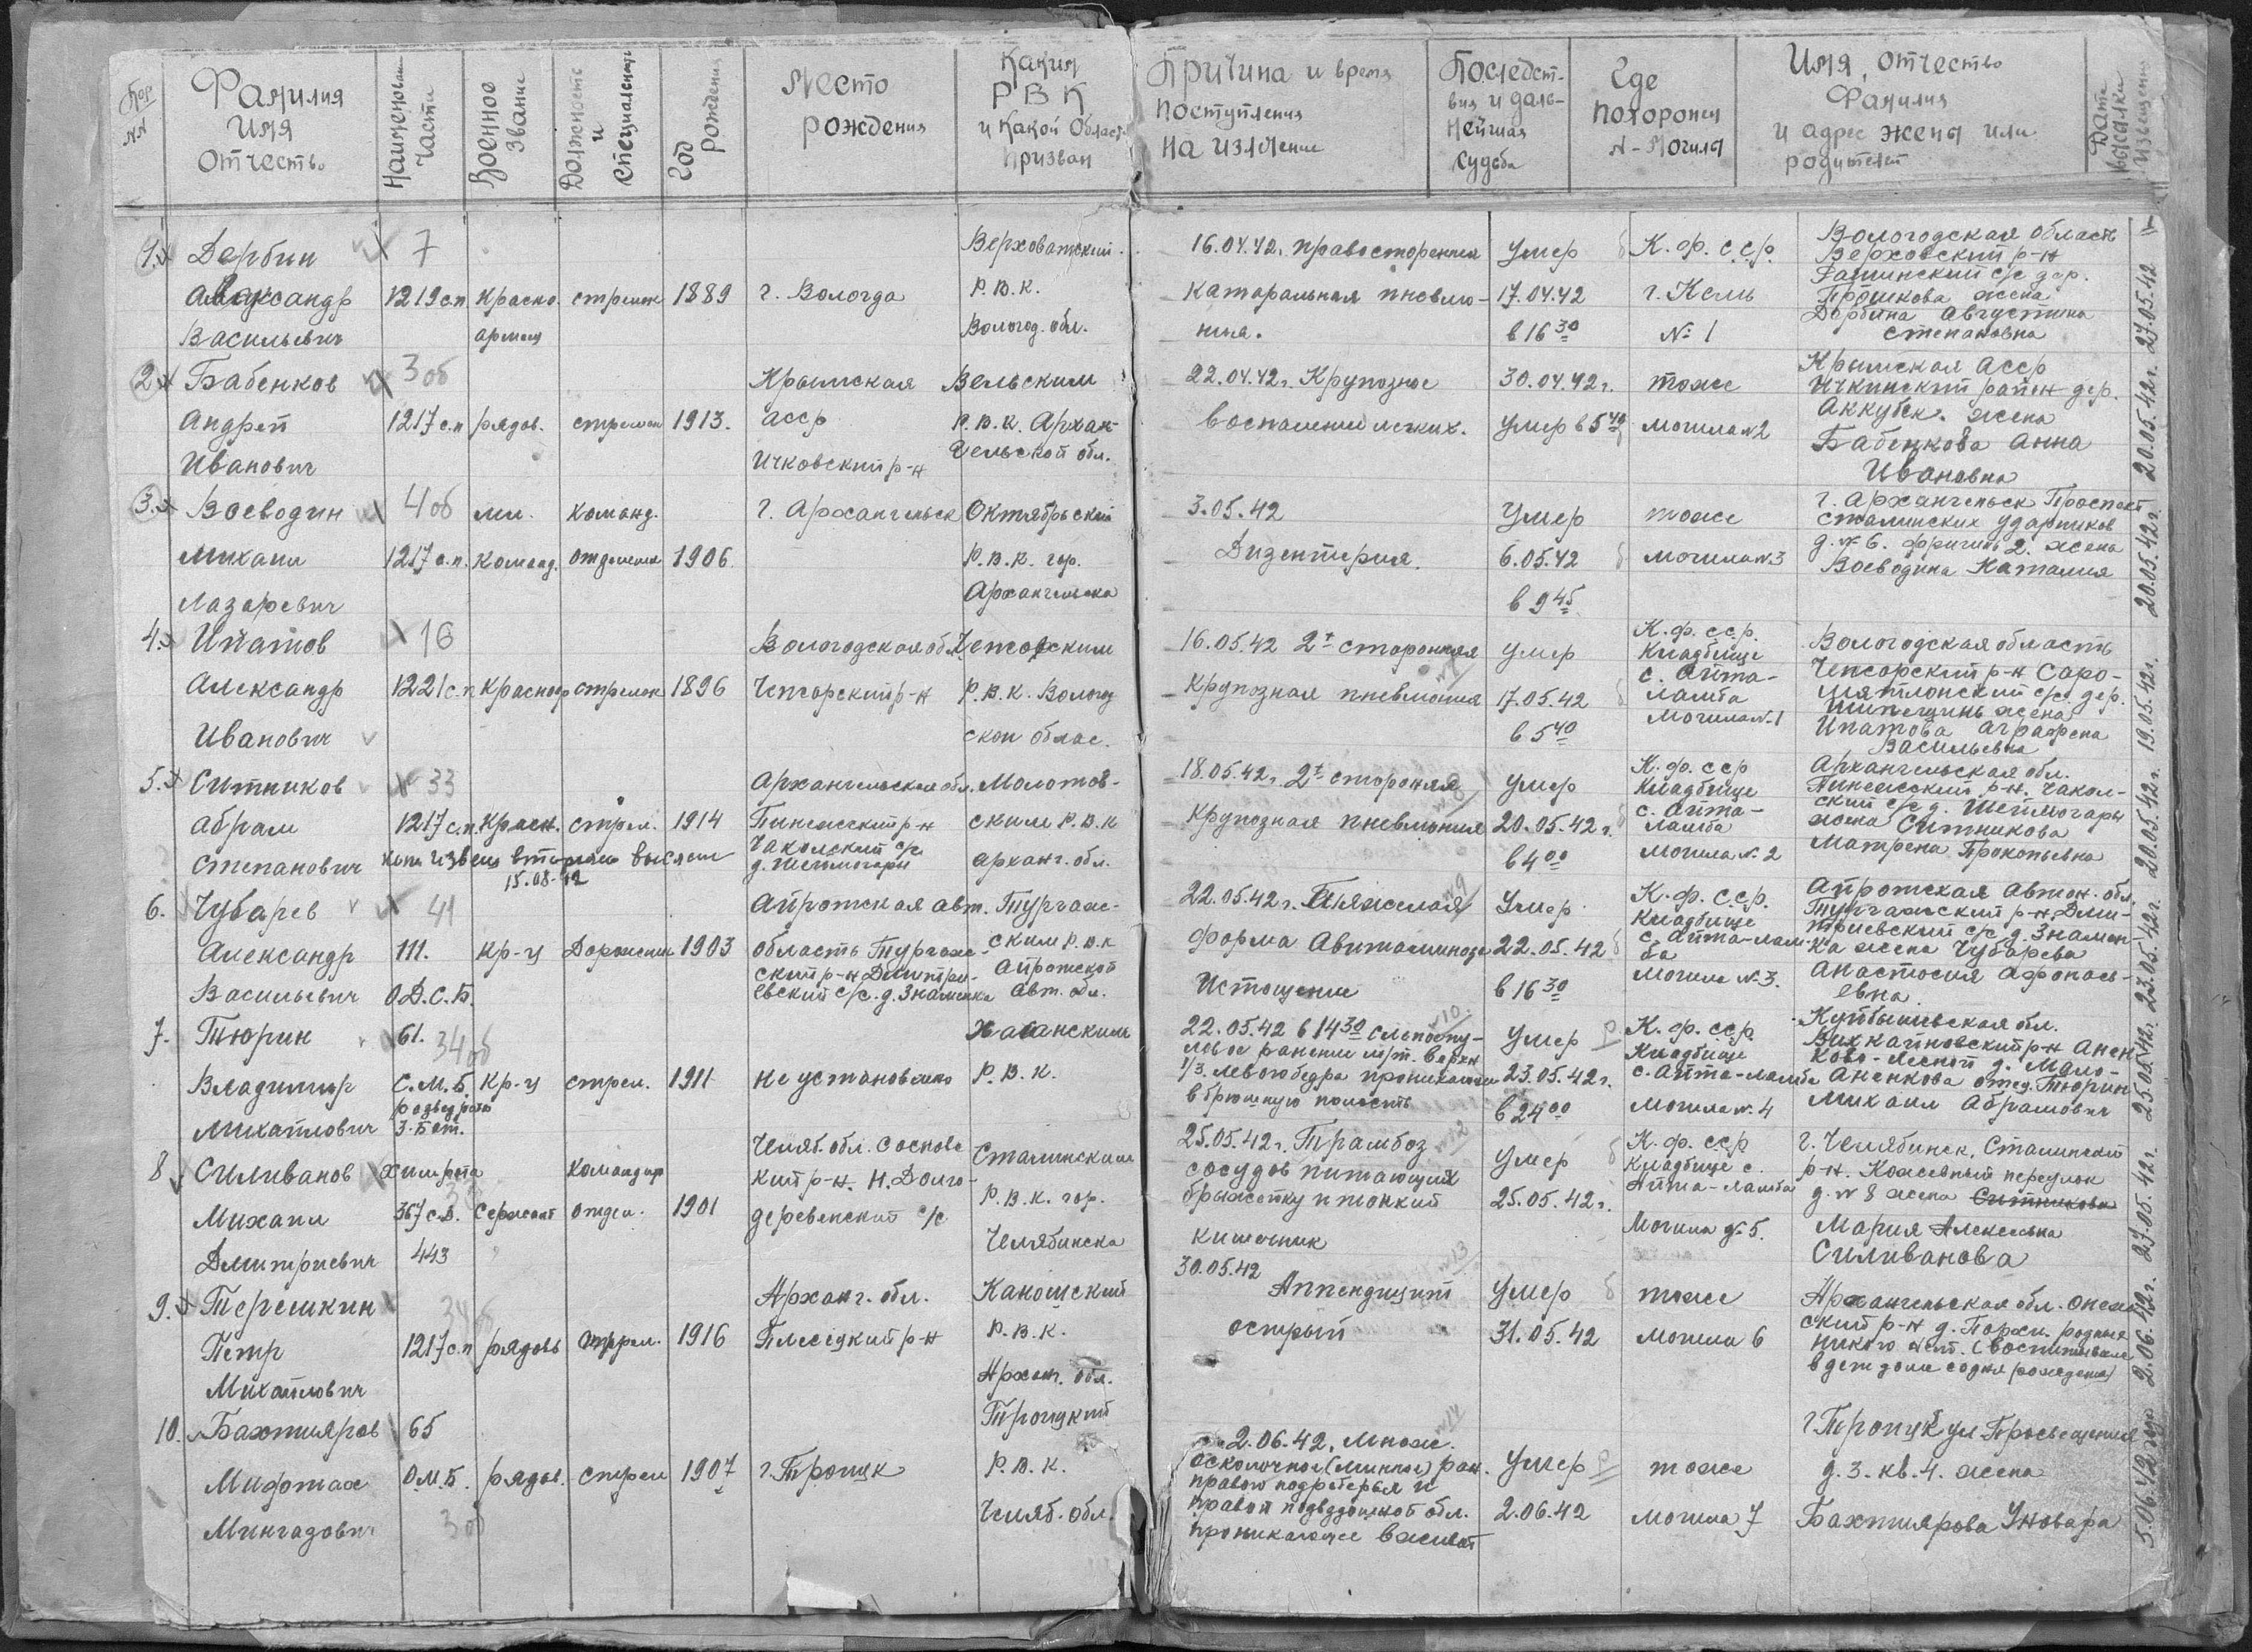 Пор. NN
Фамилия
Имя
Отчество
Наименован. части
Военное звание
Должность и специальность
Год рождения
Место
рождения
Каким
РВК
и какой област.
призван
Причина и время
поступления
на излечение
Последст-
вия и даль-
нейшая
судьба
Где
похоронен
N-могила
Имя, отчество
Фамилия
и адрес жены или
родителей
Дата высылки извещения
1. Дербин
Александр
Васильевич
7
1219 с.п.
Красно
армеец
стрелок
1889
г. Вологда
Верховатский
Р.В.К.
Вологод. обл.
16.04.42. правосторонняя
катаральная пневмо-
ния.
Умер
17.04.42
в 16 30
К.ф.с.с.р.
г. Кемь
№ 1
Вологодская область
Верховский р-н
с/с дер.
жена
Дербина Августина
Степановна
27.05.42
2. Бабенков
Андрей
Иванович
3 об
1217 с.п
рядов.
стрелок
1913.
Крымская
асср
Ичковский р-н
Вельским
Р.В.К. Архан-
гельской обл.
22.04.42г. Крупозное
воспаление легких.
30.04.42г.
Умер в 5 40
тоже
могила №2
Крымская АССР
Ичкинский район дер.
Аккубек. жена
Бабенкова Анна
Ивановна
20.05.42г.
3. Воеводин
Михаил
Лазаревич
4 об
1217 с.п.
мл.
команд.
команд.
отделения
1906
г. Архангельск
Октябрьский
Р.В.К. гор.
Архангельска
3.05.42
Дизентерия.
Умер
6.05.42
в 9 45
тоже
могила №3
г. Архангельск Проспект
сталинских ударников
д. № 6. 2. жена
Воеводина Наталия
20.05.42г.
4. Ипатов
Александр
Иванович
16
1221 с.п
Красноар
стрелок
1896
Вологодская обл.
Чепсарский р-н
Чепсарским
Р.В.К. Волог
ской облас.
16.05.42 2х сторонняя
Крупозная пневмония
Умер
17.05.42
в 5 40
К.ф.с.с.р.
Кладбище
с. Айта-
ламба
Могила №1
Вологодская область
Чепсарский р-н Саро-
с/с. дер.
жена
Ипатова Аграфена
Васильевна
19.05.42г.
5. Ситников
Абрам
Степанович
33
1217 с.п.
Красн.
стрел.
1914
Архангельская обл.
Пинежский р-н
Чакольский с/с
д. Шеймогоры
Молотов-
ским Р.В.К
арханг. обл.
15.08.42
18.05.42г. 2х стороняя
Крупозная пневмония
Умер
20.05.42г.
в 4 00
К.ф.сср
Кладбище
с. Айта-
ламба
Могила №2
Архангельская обл.
Пинежский р-н. Чаколь-
ский с/с д. Шеймогоры
жена Ситникова
Матрена Прокопьевна
20.05.42г.
6. Чубарев
Александр
Васильевич
41
111.
О.Д.С.Б.
кр-ц
Дорожник
1903
Айротская авт.
область Тургаж-
ский р-н Дмитри-
евский с/с. д. Знаменка
Тургаж-
ским Р.В.К
Айротской
авт. обл.
22.05.42г. Тяжелая
форма Авитаминоза
Истощение
Умер
22.05.42
в 16 30
К.ф.с.с.р.
Кладбище
с. Айта-лам-
ба
Могила №3.
Айротская автон. обл.
Тургажский р-н Дми-
триевский с/с д. Знамен
ка жена Чубарева
Анастосия Афонась-
евна
23.05.42г.
7. Тюрин
Владимир
Михайлович
61.
34 об
С.М.Б.
разведрота
3. Бат.
кр-ц
стрел.
1911
не установлено
Хаванским
Р.В.К.
22.05.42 в 14 30 слепое пу-
левое ранение
1/3. левого бедра проникающее
в брюшную полость
Умер
23.05.42г.
в 24 00
К.ф.сср
Кладбище
с. Айта-ламба
Могила №4
Куйбышевская обл.
р-н Анен
ково-лесной д. Мало-
Аненкова отец Тюрин
Михаил Абрамович
25.05.42г.
8 Силиванов
Михаил
Дмитриевич
химрота
367 с.д.
443
Сержант
командир
отдел.
1901
Челяб. обл. Соснове
кий р-н. Н. Долго-
деревенский с/с
Сталинским
Р.В.К. гор.
Челябинска
25.05.42г. Трамбоз
сосудов питающих
брыжейку и тонкий
кишечник
Умер
25.05.42г.
К.ф.сср
Кладбище с.
Айта-ламба
Могила №5.
г. Челябинск, Сталинский
р-н. Кожевный переулок
д. № 8 жена Ситникова
Мария Алексеевна
Силиванова
27.05.42г.
9. Терешкин
Петр
Михайлович
1217 с.п
рядовь
стрел.
1916
Арханг. обл.
Плесецкий р-н
Каношский
Р.В.К.
Арханг. обл.
30.05.42
Аппендицит
острый
Умер
31.05.42
тоже
могила 6
Архангельская обл. Онеж
ский р-н д. родных
никого нет. (воспитывался
в дет доме со дня рождения)
2.06.42г.
10. Бахтияров
Мифтах
Мингазович
65
О.М.Б.
рядов.
стрел
1907
г. Троицк
Троицкий
Р.В.К.
Челяб. обл.
2.06.42, множ.
осколочное (минное) ран.
правого подреберья и
правой подвздошной обл.
проникающее в живот
Умер
2.06.42
тоже
могила 7
г. Троицк ул Просвещения
д. 3. кв. 4. жена
Бахтиярова Уновара
5.06.42 года